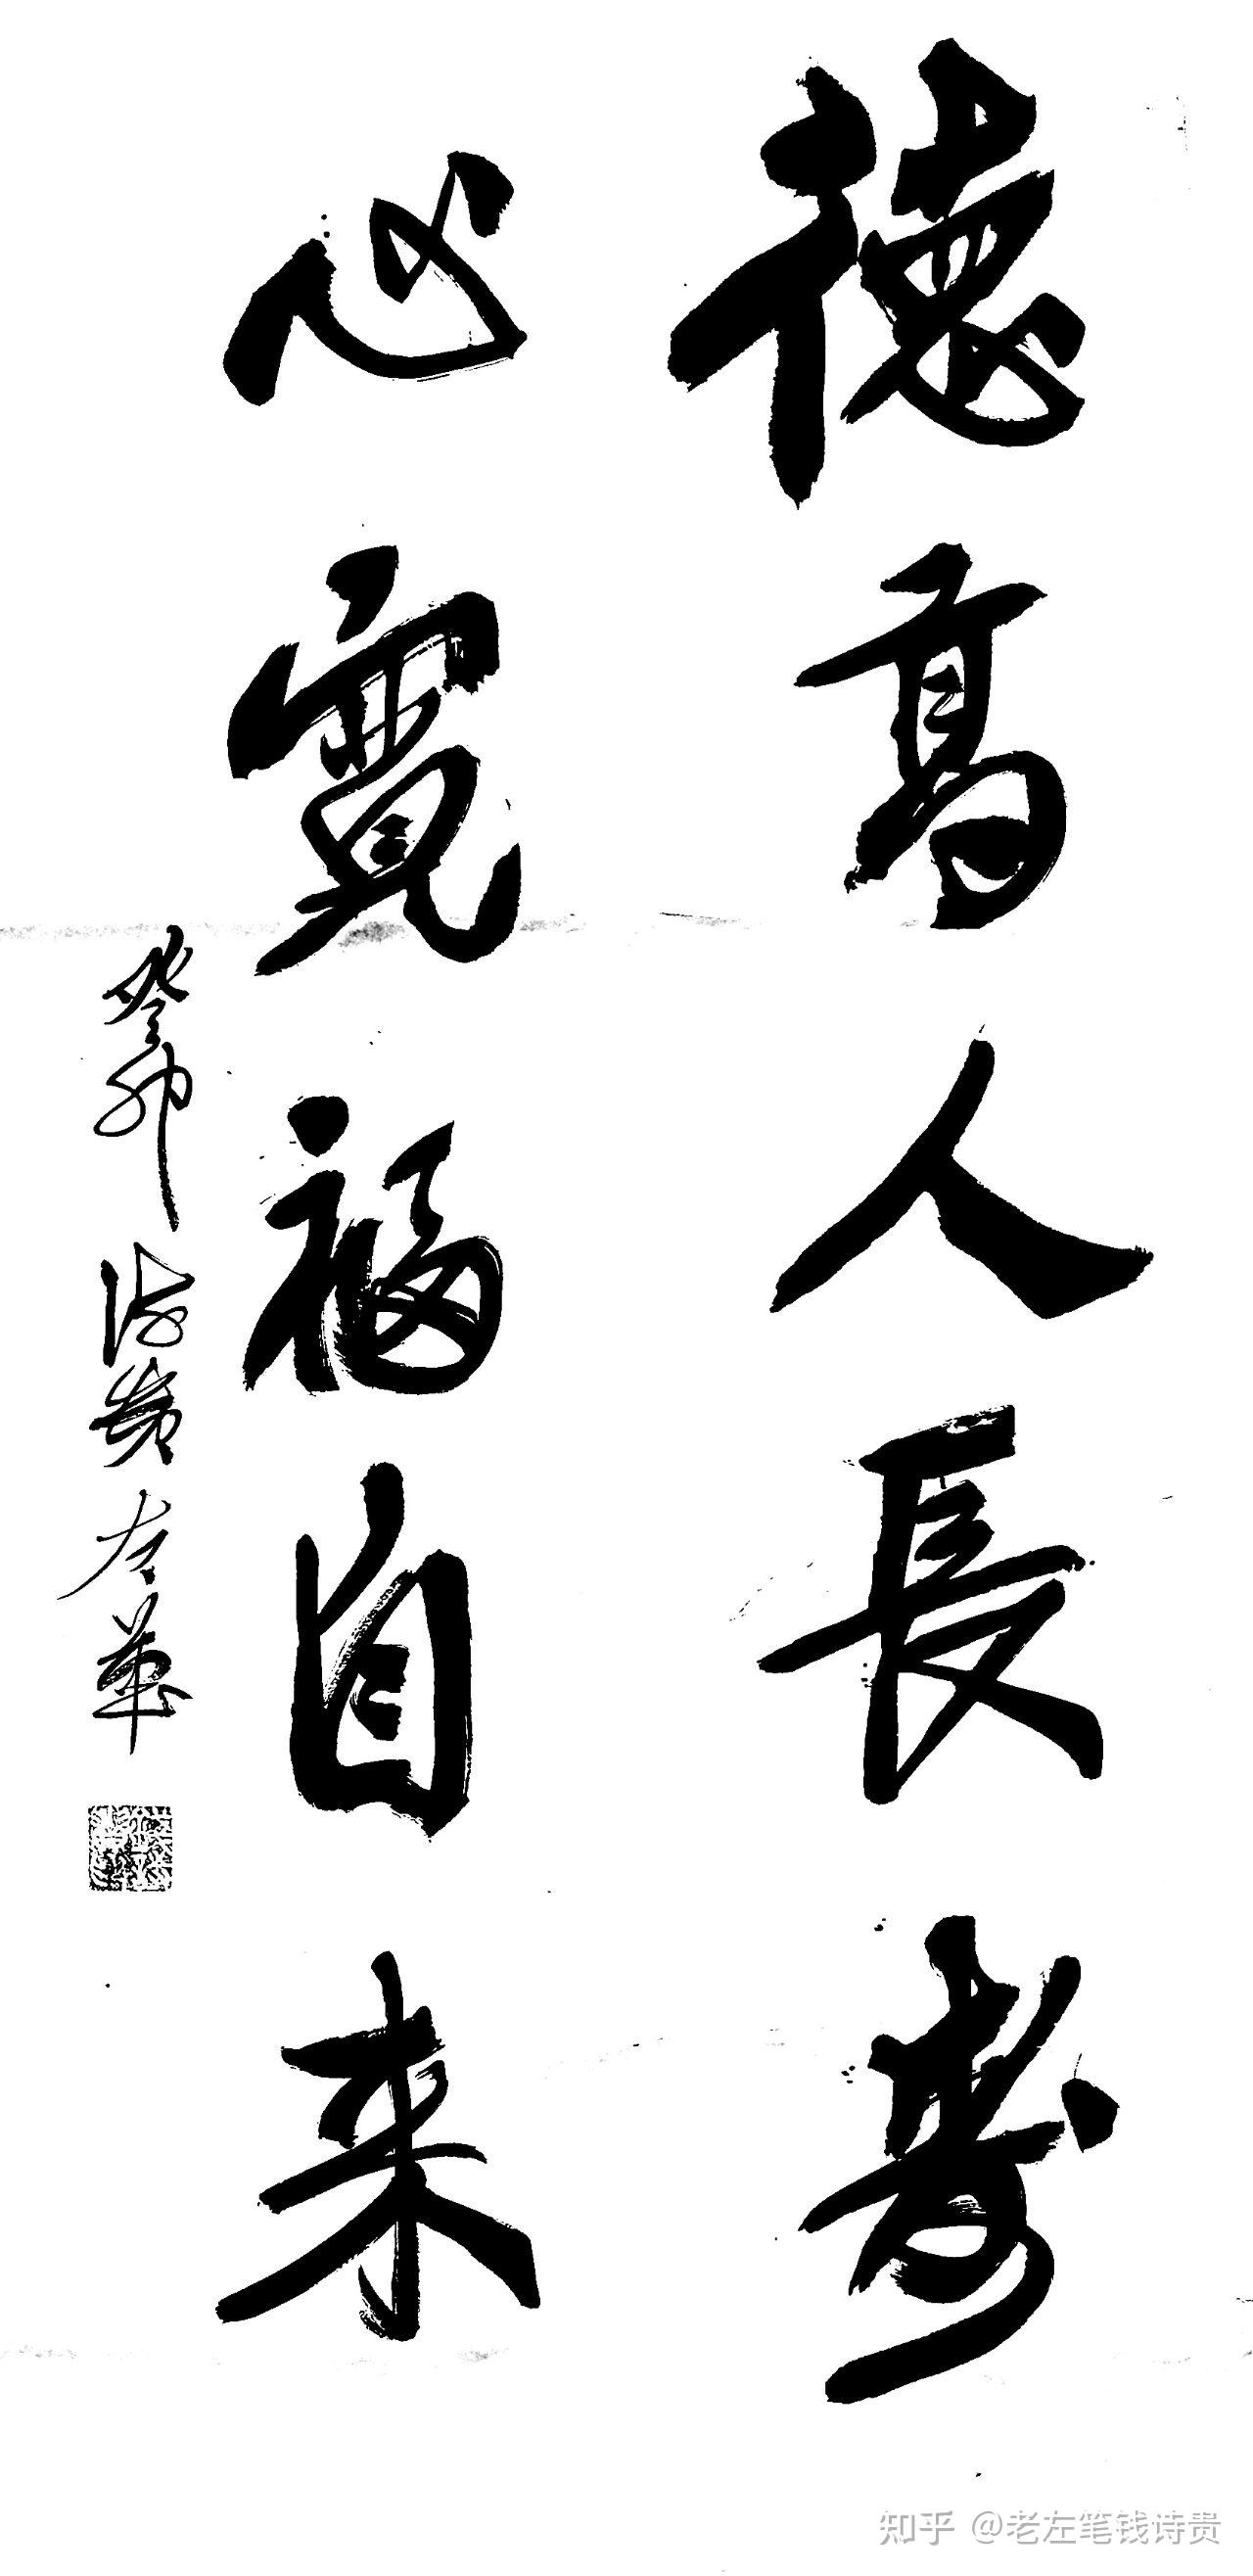 德高人長壽
心寬福自来
癸卯 诗贵 左華
知乎 @老左笔钱诗贵